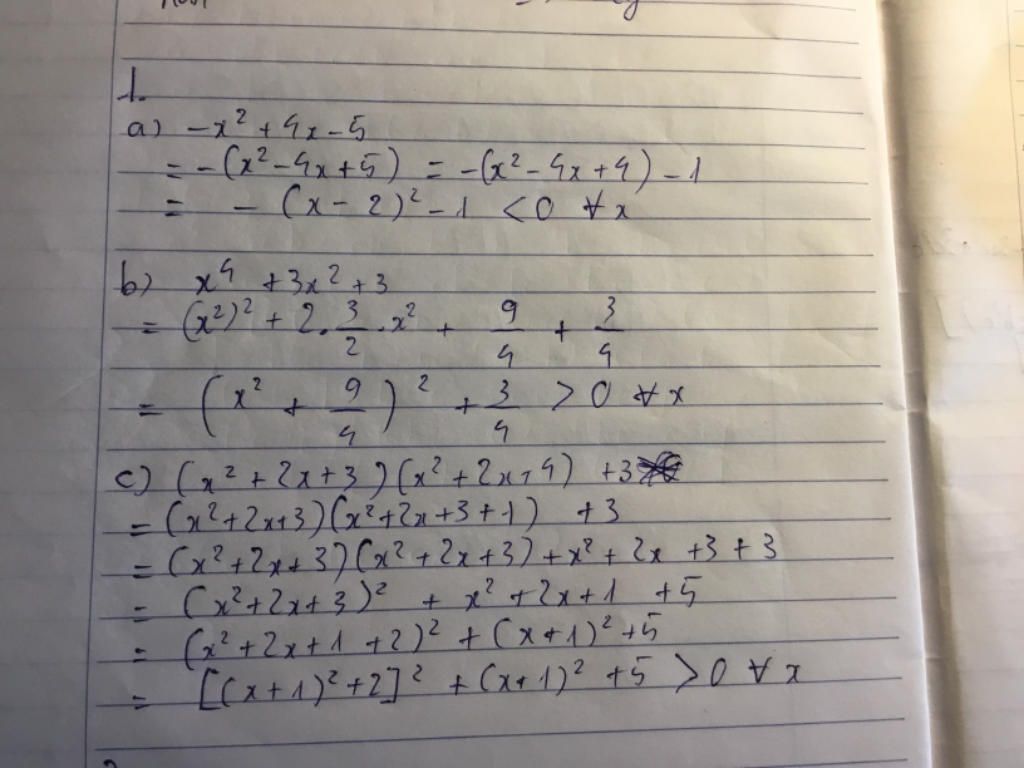 1.
a) -x² + 4x - 5
= -(x² - 4x + 5) = -(x² - 4x + 4) - 1
= - (x - 2)² - 1 < 0 ∀ x
b) x⁴ + 3x² + 3
= (x²)² + 2.3/2.x² + 9/4 + 3/4
= (x² + 9/4)² + 3/4 > 0 ∀ x
c) (x² + 2x + 3)(x² + 2x + 4) + 3
= (x² + 2x + 3)(x² + 2x + 3 + 1) + 3
= (x² + 2x + 3)(x² + 2x + 3) + x² + 2x + 3 + 3
= (x² + 2x + 3)² + x² + 2x + 1 + 5
= (x² + 2x + 1 + 2)² + (x + 1)² + 5
= [(x + 1)² + 2]² + (x + 1)² + 5 > 0 ∀ x